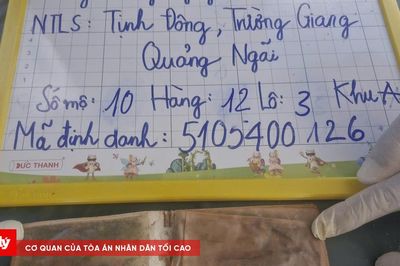 NTLS: Tịnh Đông, Trường Giang
Quảng Ngãi
Số mộ: 10 Hàng: 12 Lô: 3 Khu A
Mã định danh: 5105400126
ĐỨC THANH
CƠ QUAN CỦA TÒA ÁN NHÂN DÂN TỐI CAO